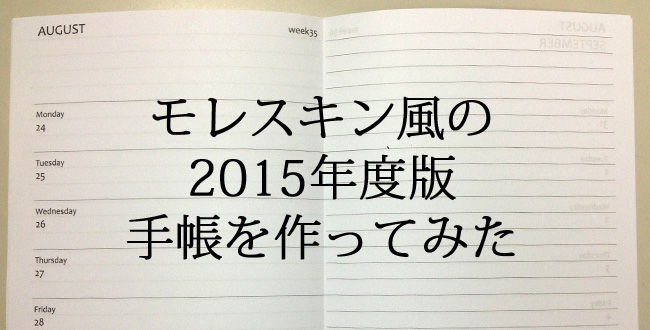 AUGUST
week35
モレスキン風の
2015年度版
手帳を作ってみた
Monday
24
Tuesday
25
Wednesday
26
Thursday
27
Friday
28